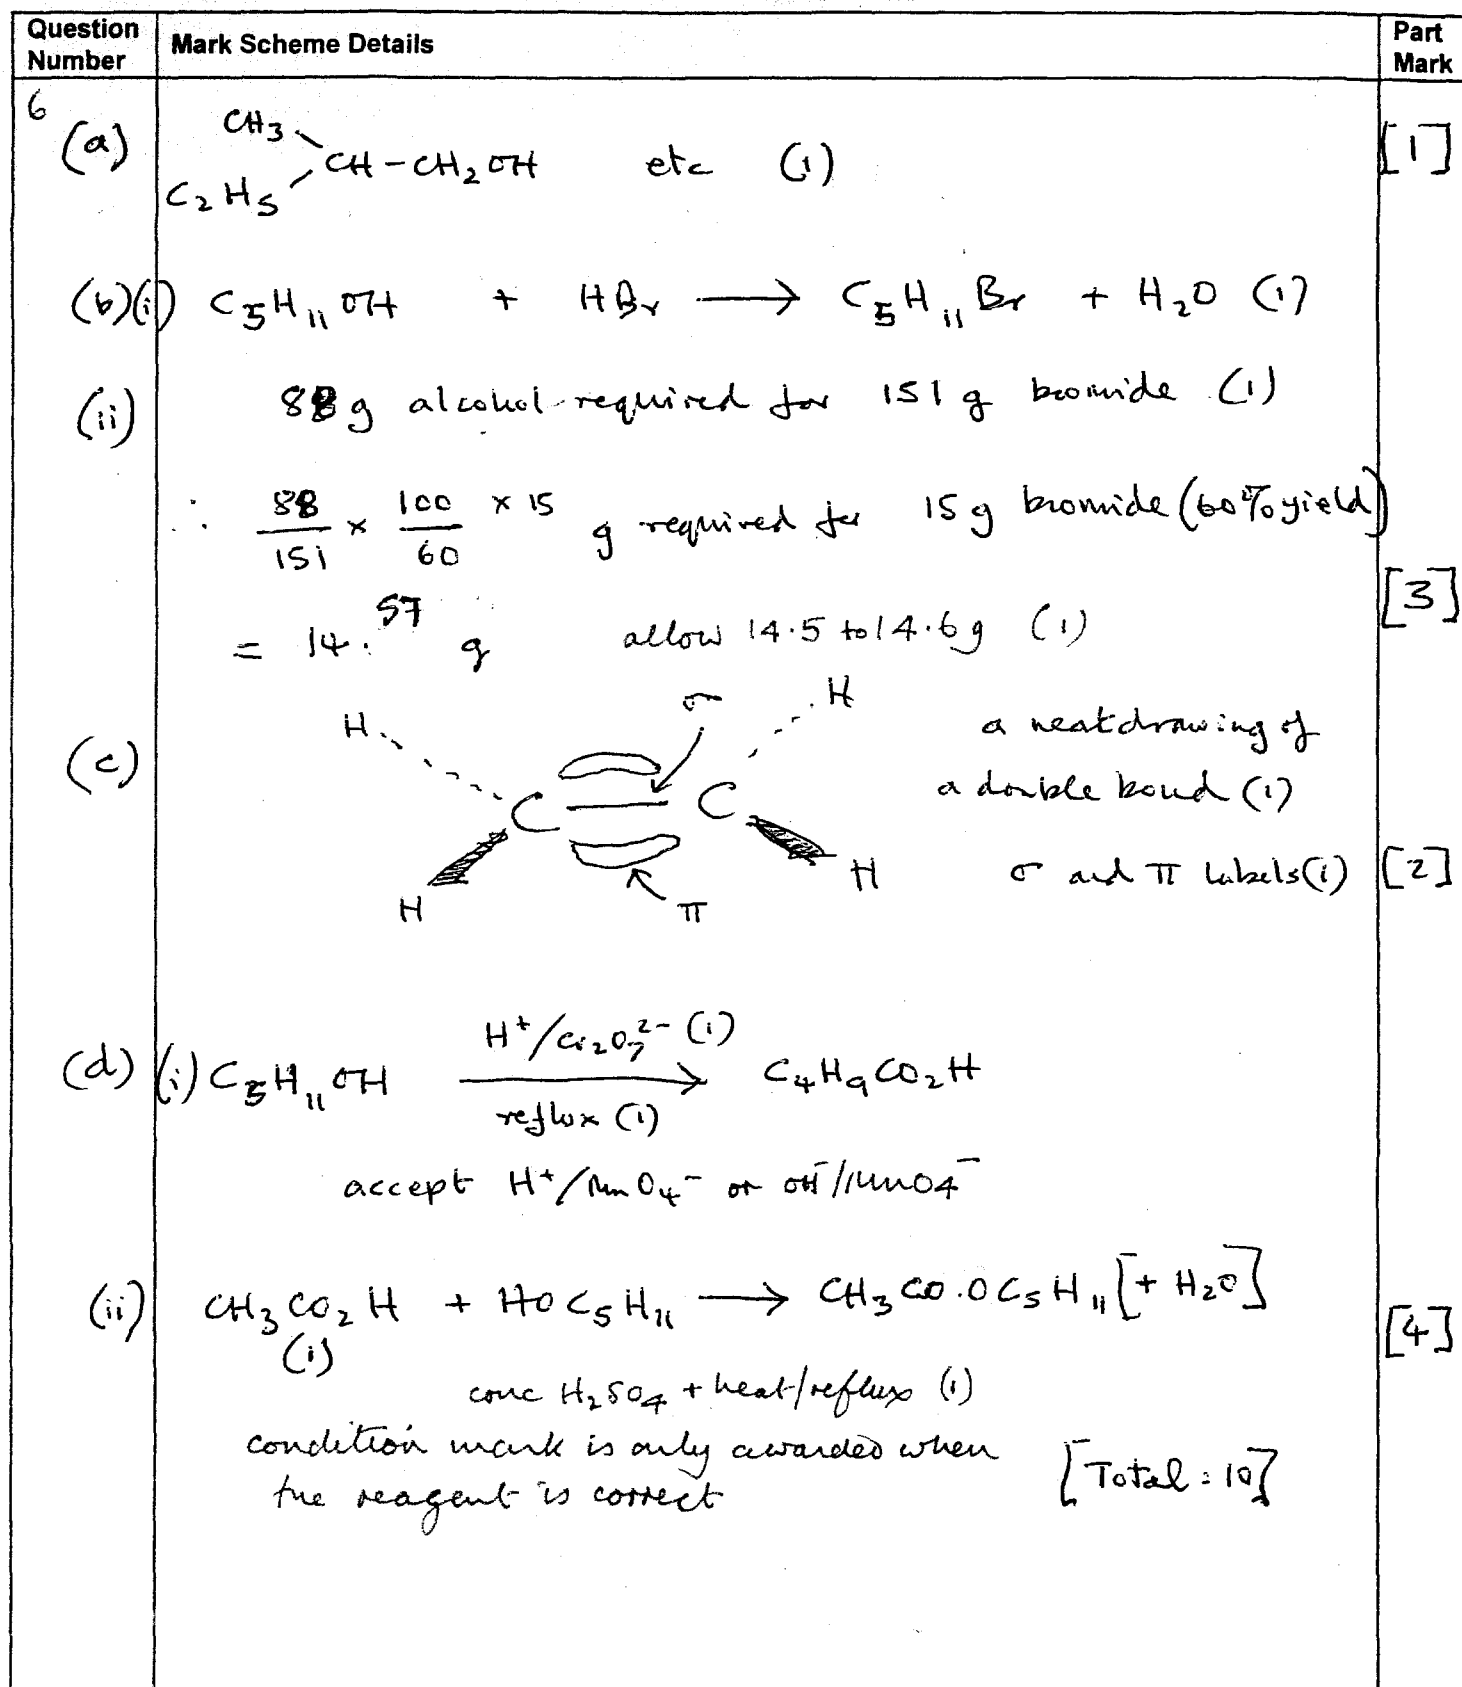 Question Number | Mark Scheme Details | Part Mark
6 (a) CH₃
C₂H₅ CH-CH₂OH etc (1) [1]
(b)(i) C₅H₁₁OH + HBr ⟶ C₅H₁₁Br + H₂O (1)
(ii) 88 g alcohol required for 151 g bromide (1)
∴ 88/151 × 100/60 × 15 g required for 15 g bromide (60% yield)
= 14.57 g allow 14.5 to 14.6 g (1) [3]
H σ H
(c) C C
H π H
a neat drawing of
a double bond (1)
σ and π labels (1) [2]
(d) (i) C₅H₁₁OH H⁺/Cr₂O₇²⁻ (1) ⟶ reflux (1) C₄H₉CO₂H
accept H⁺/MnO₄⁻ or OH⁻/MnO₄⁻
(ii) CH₃CO₂H + HOC₅H₁₁ ⟶ CH₃CO.OC₅H₁₁ [+ H₂O]
(1) [4]
conc H₂SO₄ + heat/reflux (1)
condition mark is only awarded when
the reagent is correct [Total : 10]